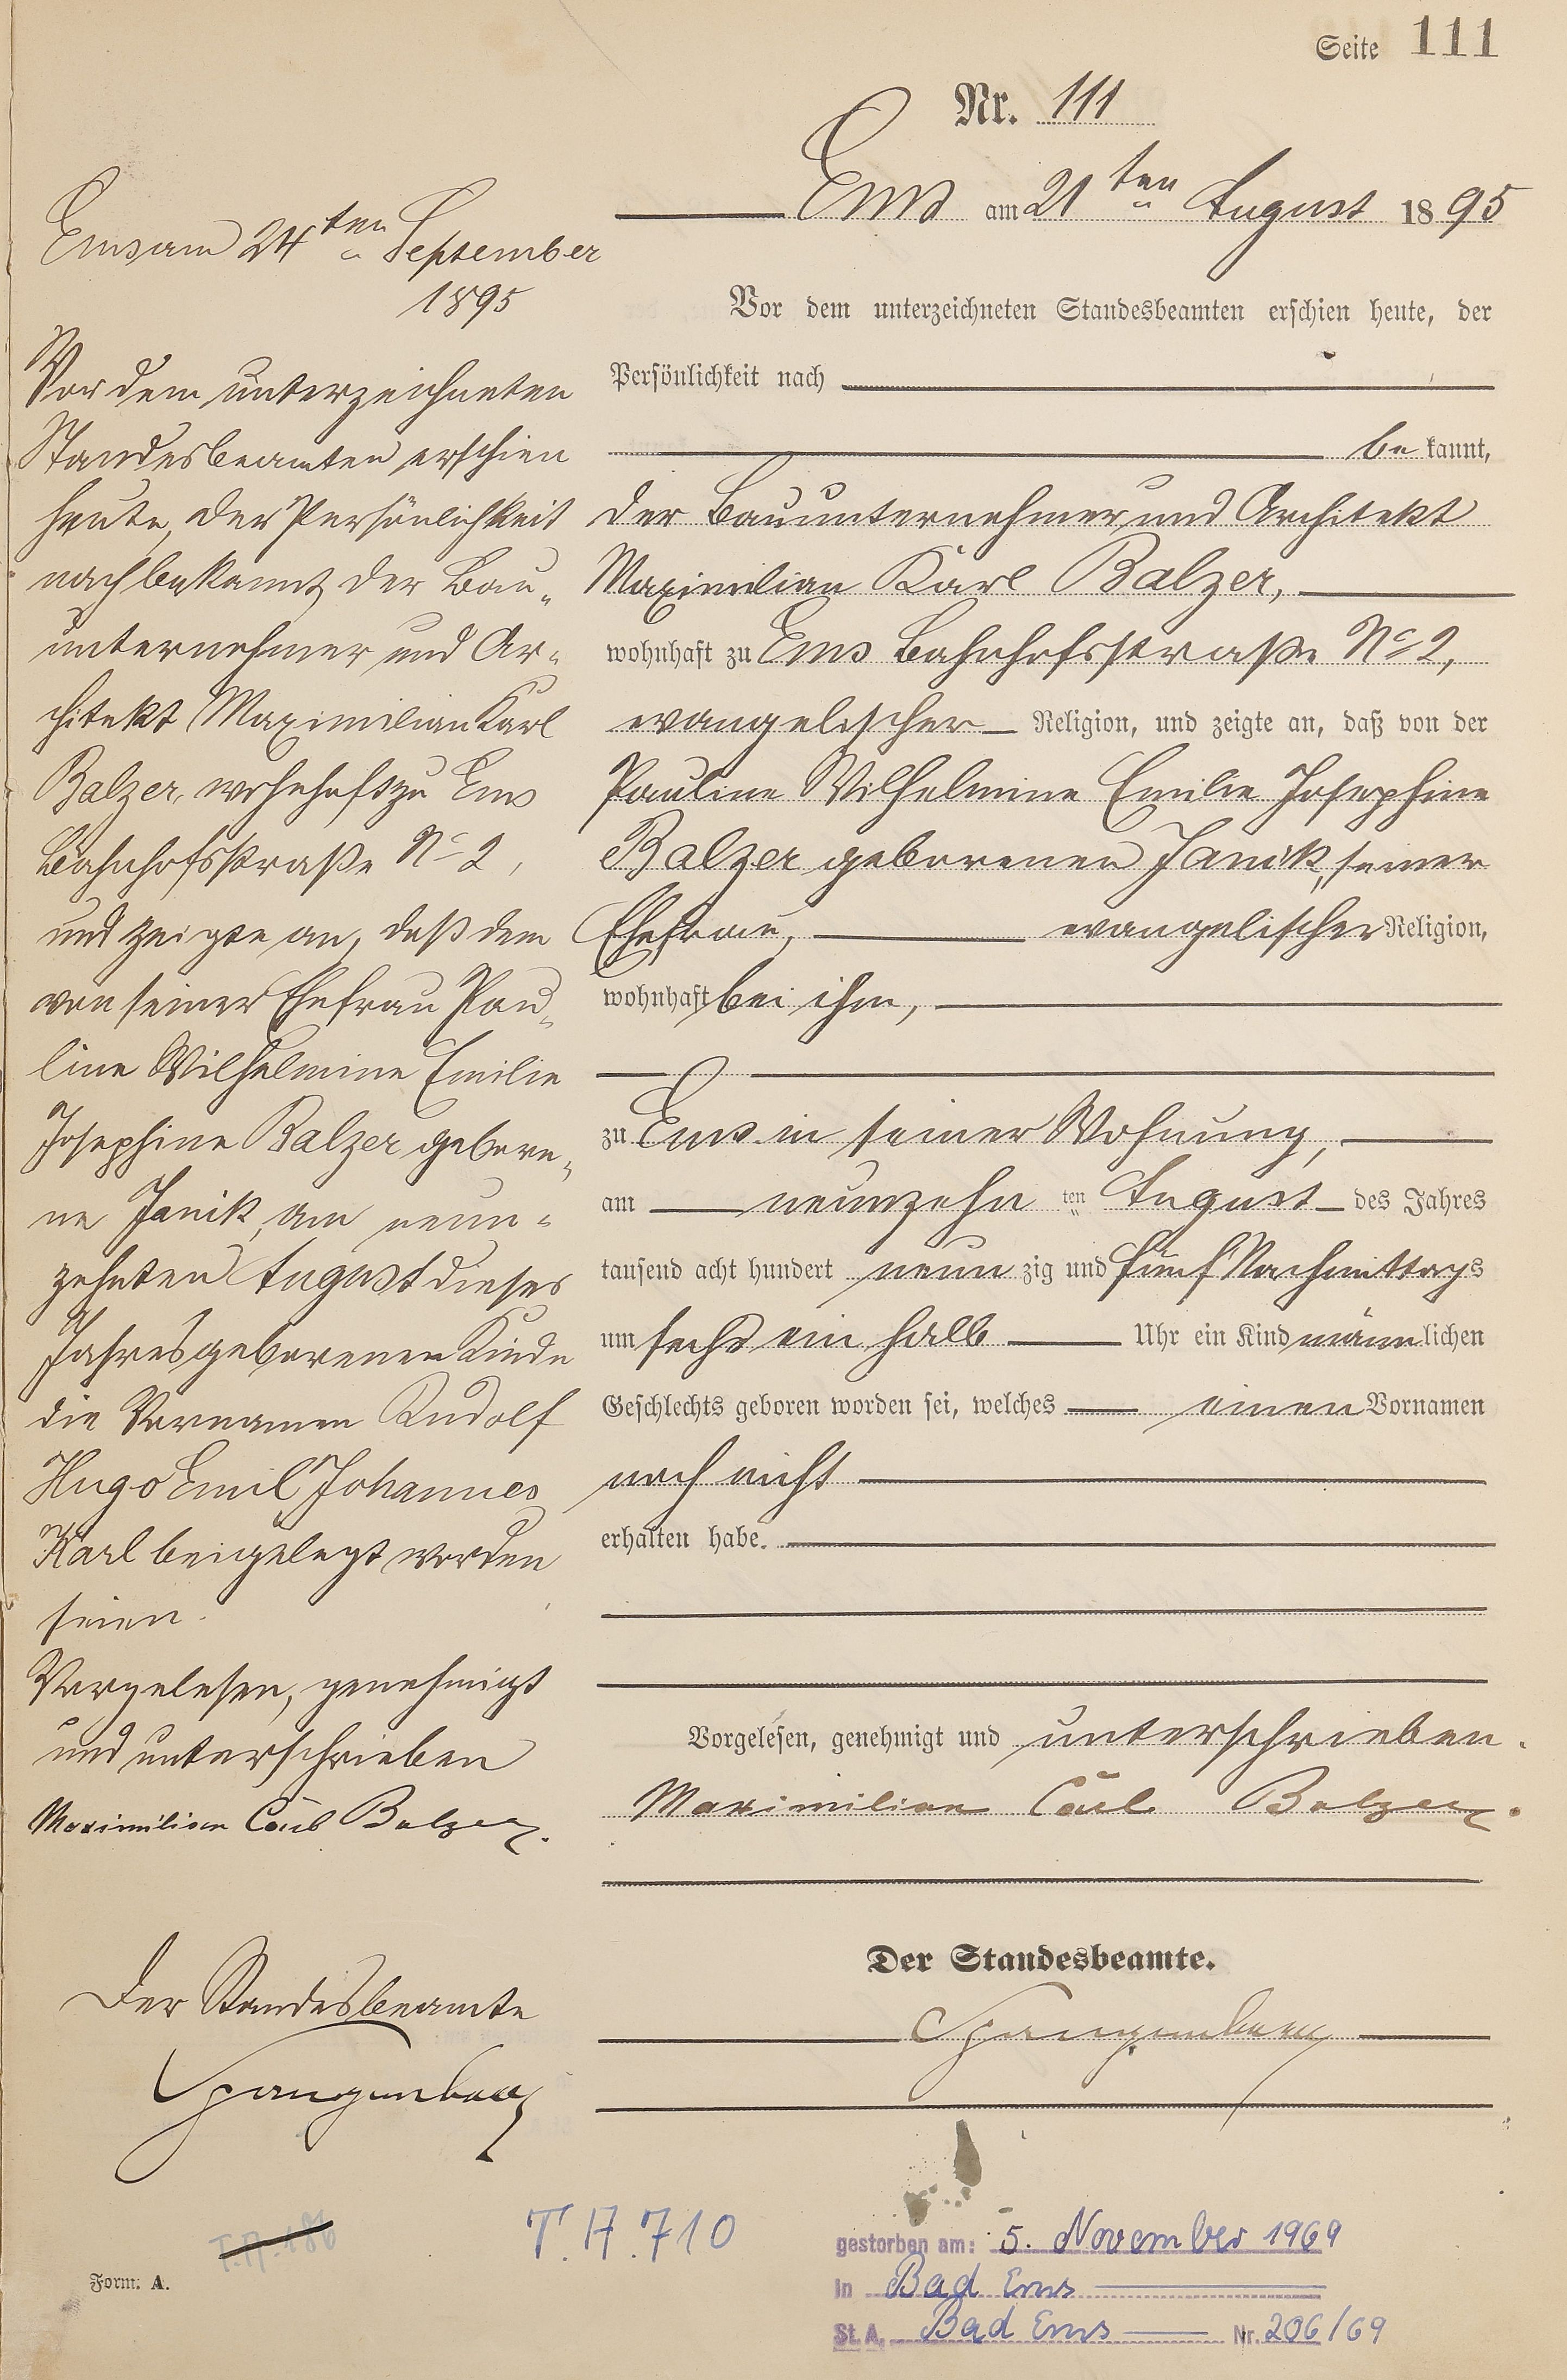 Seite 111
Nr. 111
Ems am 21ten August 1895
Vor dem unterzeichneten Standesbeamten erschien heute, der
Persönlichkeit nach
bekannt,
der Bauunternehmer und Architekt
Maximilian Karl Balzer,
wohnhaft zu Ems Bahnhofsstraße No 2,
evangelischer Religion, und zeigte an, daß von der
Pauline Wilhelmine Emilie Josephine
Balzer geborenen Janik, seiner
Ehefrau, evangelischer Religion,
wohnhaft bei ihm,
zu Ems in seiner Wohnung,
am neunzehnten August des Jahres
tausend acht hundert neunzig und fünf Nachmittags
um sechs ein halb Uhr ein Kind männlichen
Geschlechts geboren worden sei, welches einen Vornamen
noch nicht
erhalten habe.
Vorgelesen, genehmigt und unterschrieben.
Maximilian Carl Balzer.
Der Standesbeamte.
Spangenberg
Ems am 24ten September
1895
Vor dem unterzeichneten
Standesbeamten erschien
heute, der Persönlichkeit
nach bekannt, der Bau-
unternehmer und Ar-
chitekt Maximilian Karl
Balzer, wohnhaft zu Ems
Bahnhofsstraße No 2,
und zeigte an, daß dem
von seiner Ehefrau Pau-
line Wilhelmine Emilie
Josephine Balzer gebore-
ne Janik, am neun-
zehnten August dieses
Jahres geborenen Kinde
die Vornamen Rudolf
Hugo Emil Johannes
Karl beigelegt worden
seien.
Vorgelesen, genehmigt
und unterschrieben
Maximilian Carl Balzer.
Der Standesbeamte
Spangenberg
T.A. 186
T.A. 710
Form. A.
gestorben am: 5. November 1969
in Bad Ems
St. A. Bad Ems Nr. 206/69